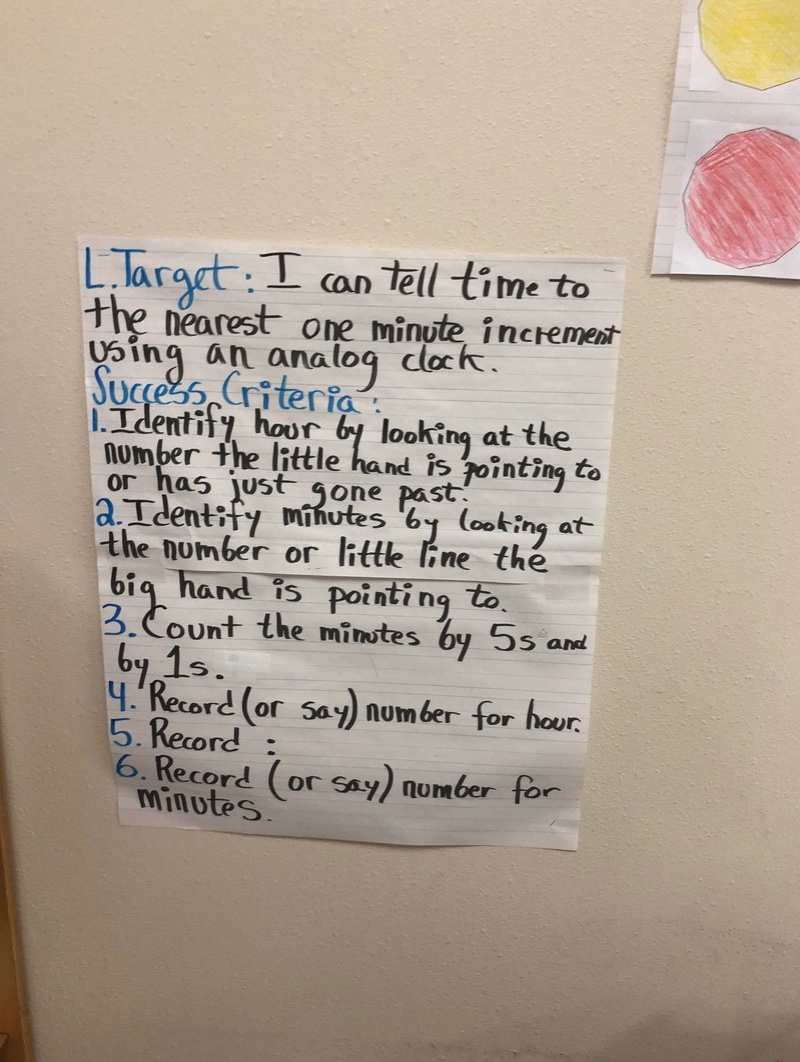 L.Target: I can tell time to
the nearest one minute increment
using an analog clock.
Success Criteria:
1. Identify hour by looking at the
number the little hand is pointing to
or has just gone past.
2. Identify minutes by looking at
the number or little line the
big hand is pointing to.
3. Count the minutes by 5s and
by 1s.
4. Record (or say) number for hour.
5. Record :
6. Record (or say) number for
minutes.